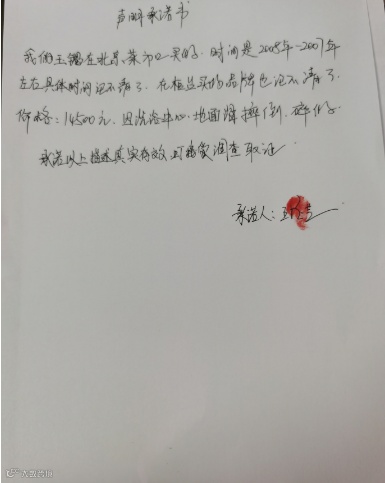 声明承诺书
我的玉镯在北京.菜市口买的.时间是2005年-2007年
左右具体时间记不清了.在柜台买的品牌也记不清了
价格:14500元.因洗浴中心.地面滑摔倒.碎的.
承诺以上描述真实有效,可接受调查取证
承诺人: